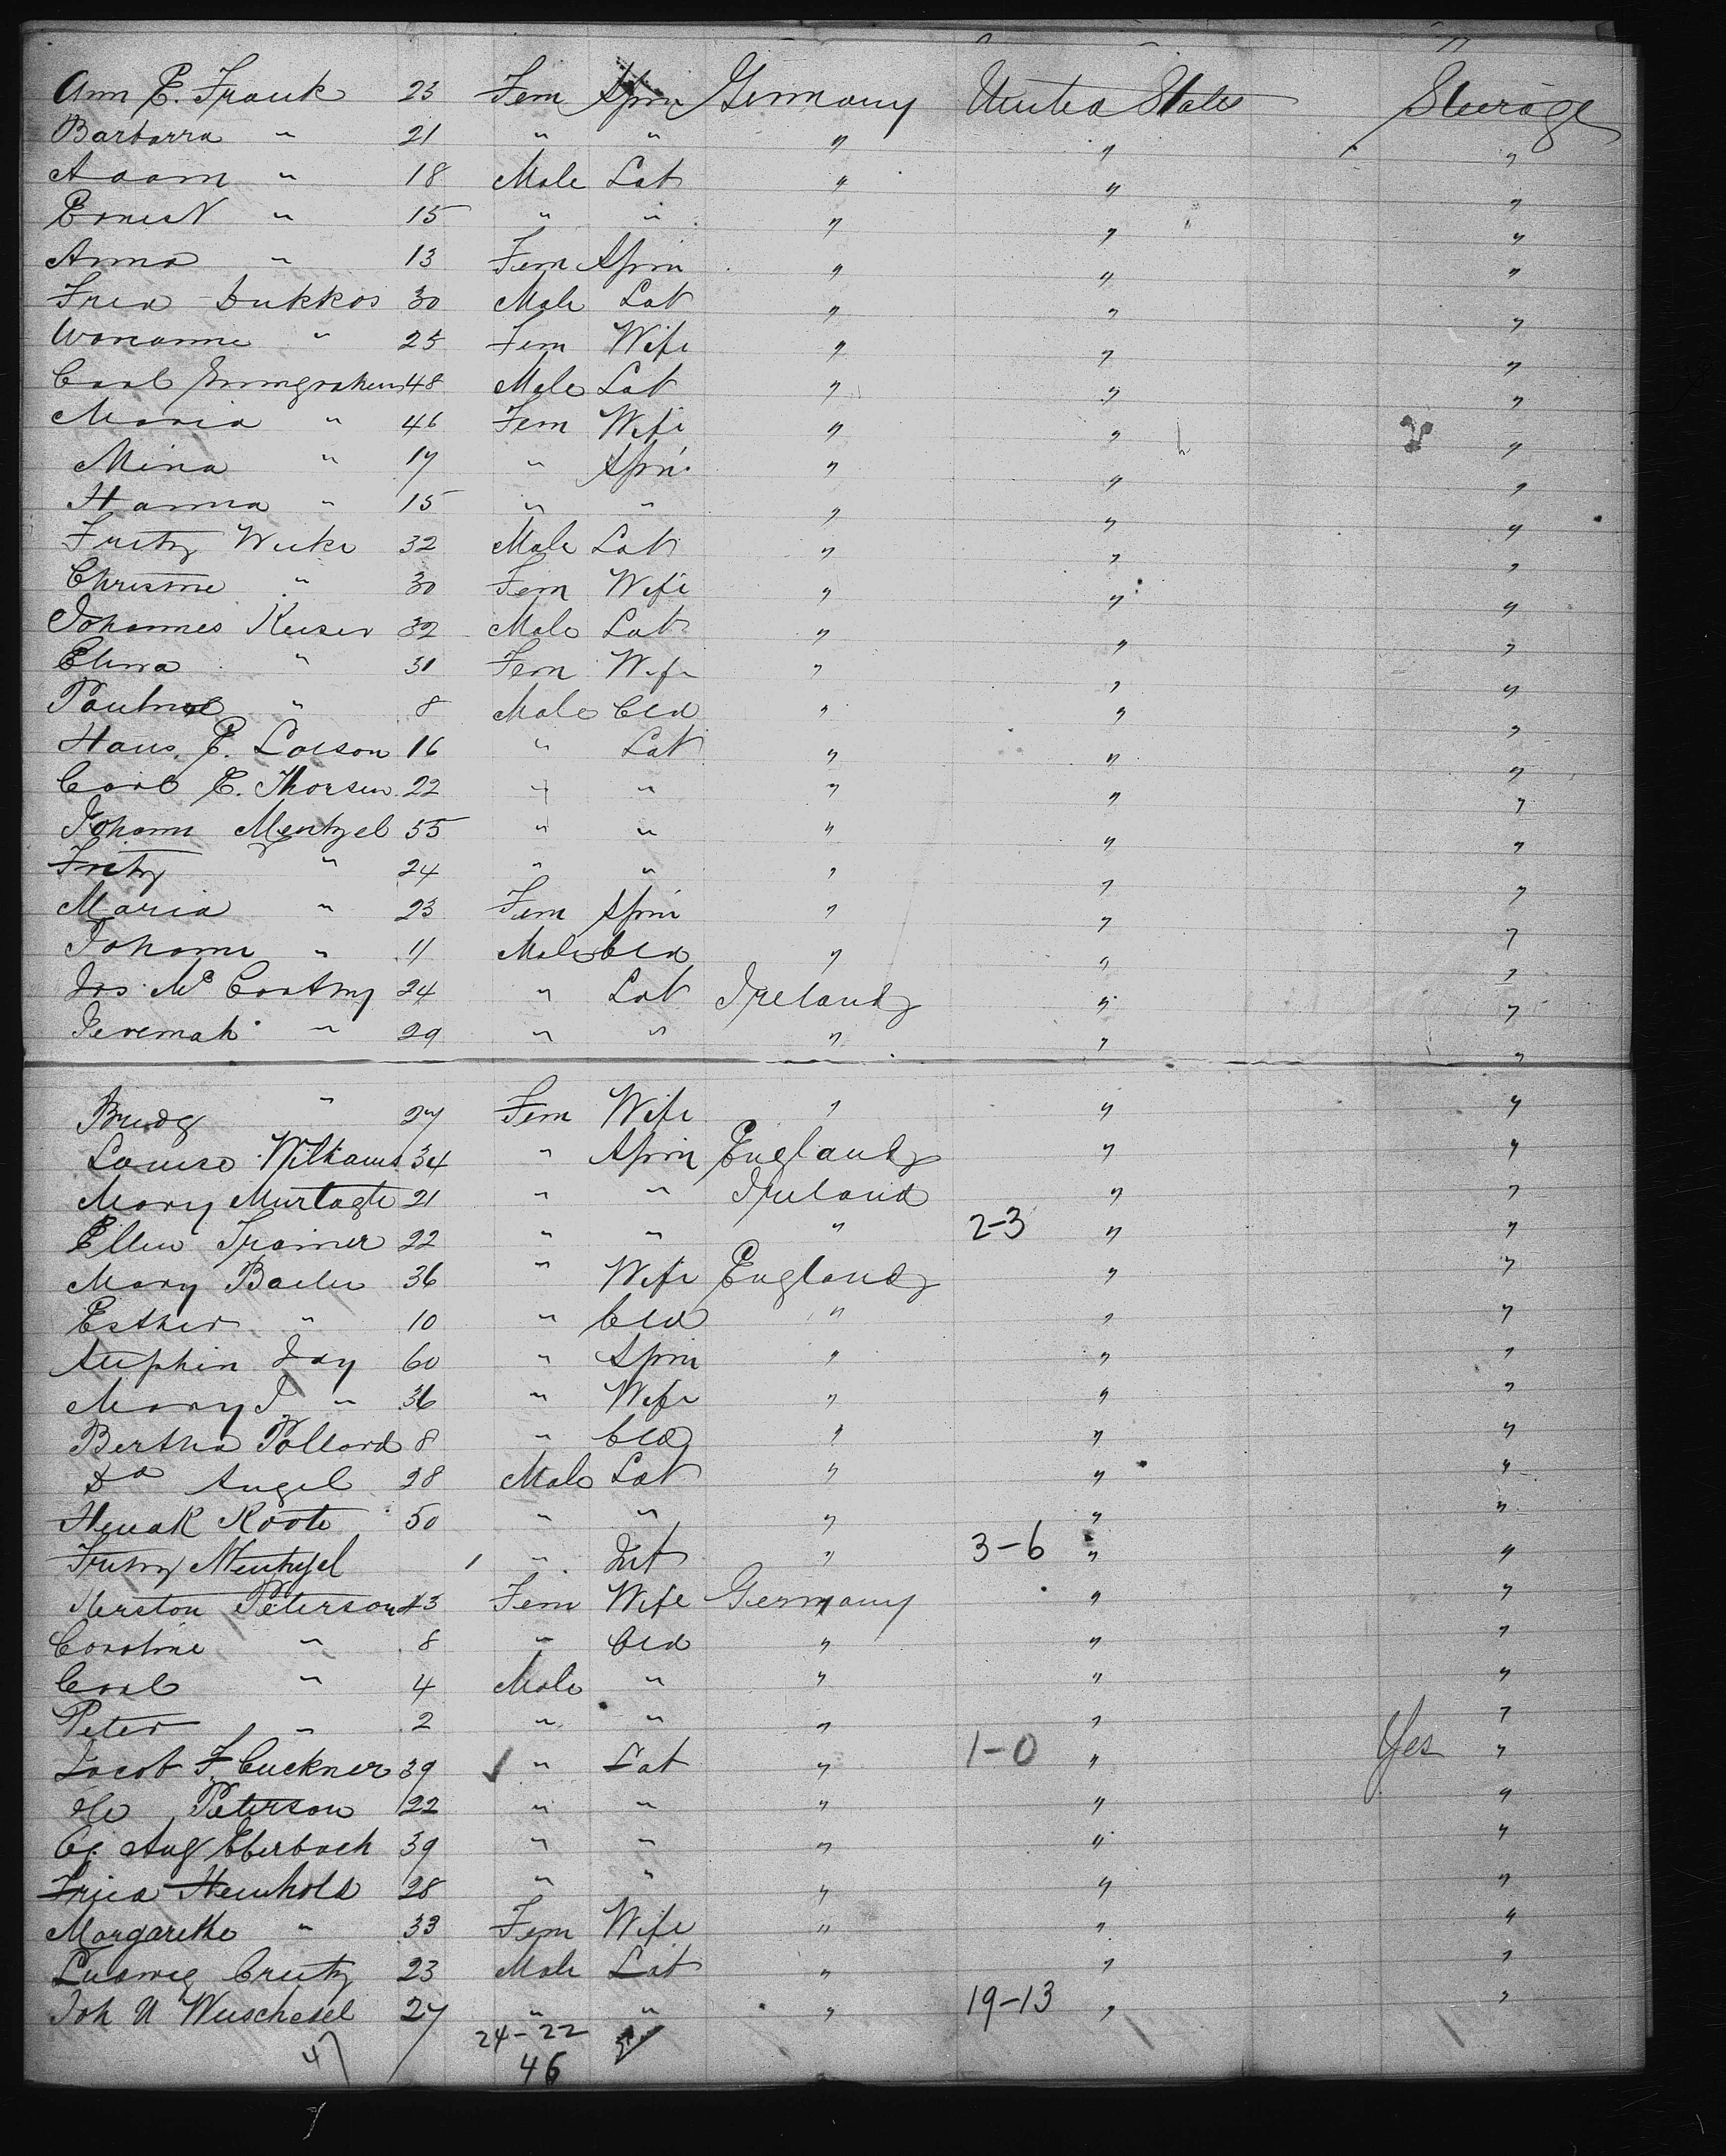 Ann E. Frank 23 Fem Spin Germany United States Steerage
Barbarra " 21 " " " " "
Adam " 18 Male Lab " " "
Ernest " 15 " " " " "
Anna " 13 Fem Spin " " "
Fred Dukkos 30 Male Lab " " "
" 25 Fem Wife " " "
Carl 48 Male Lab " " "
Maria " 46 Fem Wife " " "
Mina " 17 " Spin " " "
Hanna " 15 " " " " "
Fritz Wieke 32 Male Lab " " "
Christine " 30 Fem Wife " " "
Johannes Keiser 32 Male Lab " " "
" 31 Fem Wife " " "
8 Male Cld " " "
Hans P. 16 " Lab " " "
Carl C. Thorsen 22 " " " " "
Johann Mentzel 55 " " " " "
Fritz " 24 " " " " "
Maria " 23 Fem Spin " " "
Johann " 11 Male Cld " " "
Jas Mc Carthy 24 " Lab Ireland " "
Jeremah " 29 " " " " "
Bridg " 27 Fem Wife " " "
Louisa Williams 34 " Spin England " "
Mary Murtagh 21 " " Ireland " "
Ellen Trainer 22 " " " 2-3 " "
Mary 36 " Wife England " "
Esther " 10 " Cld " " "
Stephin Day 60 " Spin " " "
Mary J. " 36 " Wife " " "
Bertha Pollard 8 " Cld " " "
Do Angel 28 Male Lab " " "
Roote 50 " " " " "
Fritz Mentzel " Inft " 3-6 " "
Kerston Peterson 43 Fem Wife Germany " "
Caroline " 8 " Cld " " "
Carl " 4 Male " " " "
Peter " 2 " " " " "
Jacob F. Cuckner 39 ✓ " Lab " 1-0 " Yes "
Peterson 22 " " " " "
Aug Eberbach 39 " " " " "
Fried Heinhold 28 " " " " "
Margarethe " 33 Fem Wife " " "
Ludwig Creutz 23 Male Lab " " "
Joh U Wuschesel 27 " " " 19-13 " "
47 24-22
46